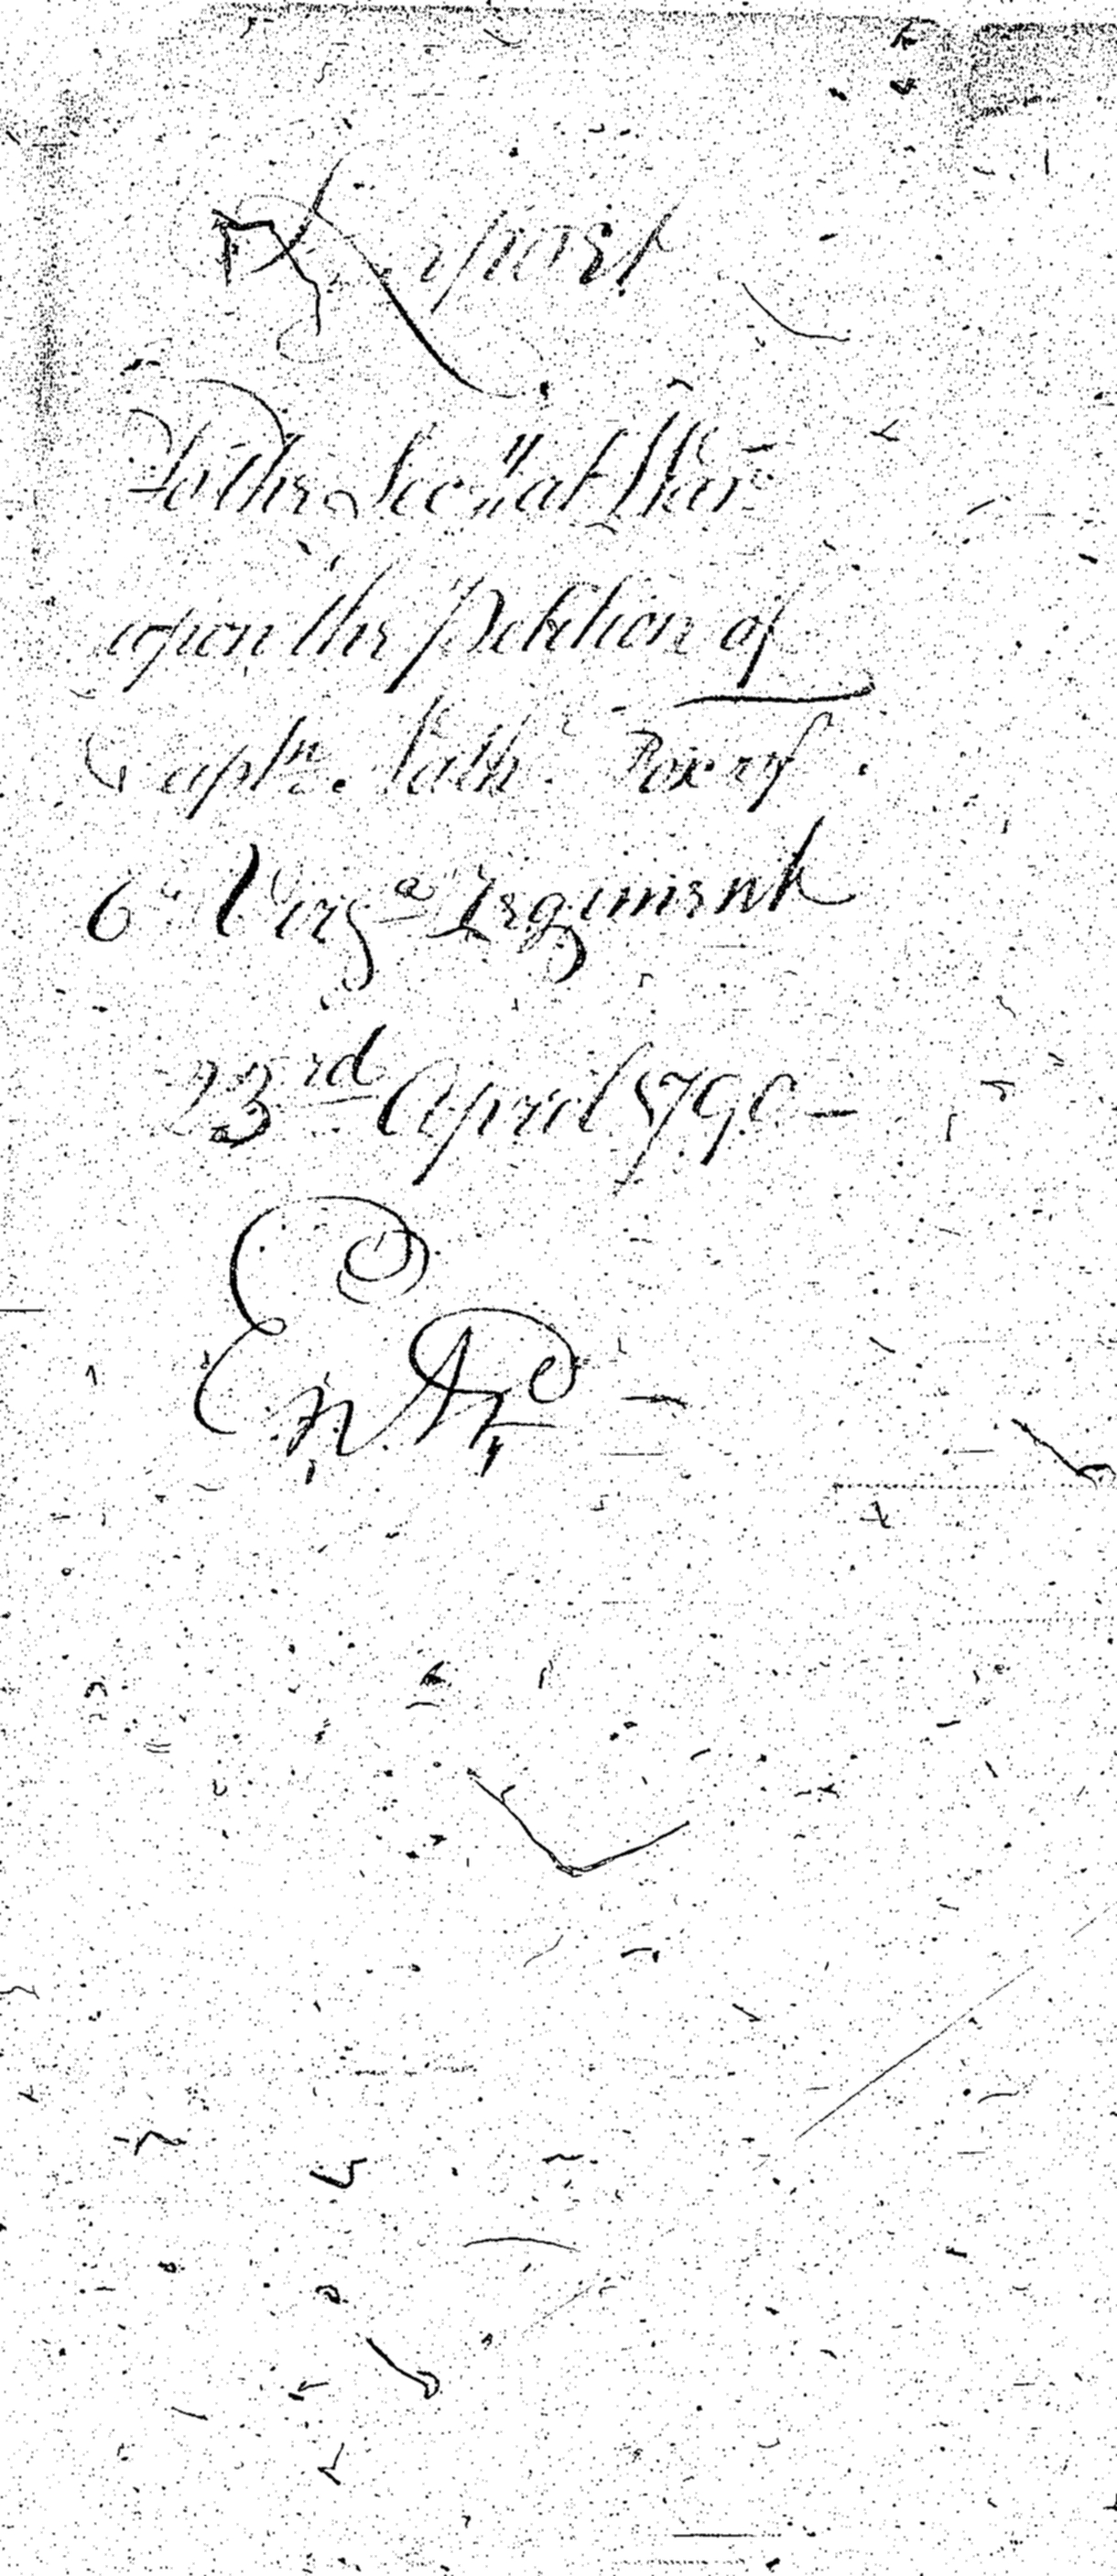 Report
To the Sec'y at War
upon the Petition of
Captn. Nath. Fox of
6th Virga Regiment
23rd April 1790 —
Entd —